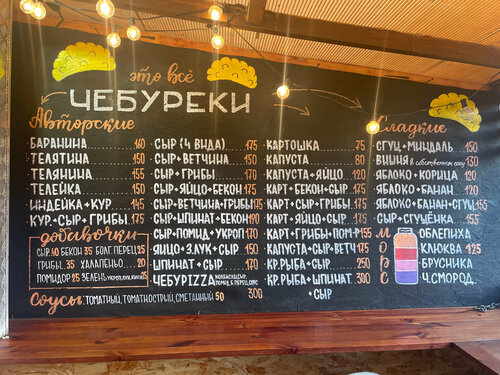 это всё
ЧЕБУРЕКИ
Авторские
БАРАНИНА 160
ТЕЛЯТИНА 150
ТЕЛЯНИНА 155
ТЕЛЕЙКА 150
ИНДЕЙКА + КУР. 145
КУР.+СЫР+ГРИБЫ 175
добавочки
СЫР.40 БЕКОН 35 БОЛГ.ПЕРЕЦ 25
ГРИБЫ..35 ХАЛАПЕНЬО..20
ПОМИДОР 25 ЗЕЛЕНЬ
Соусы: ТОМАТНЫЙ, ТОМАТНОСТРЫЙ, СМЕТАННЫЙ 50
СЫР (4 ВИДА) 175
СЫР+ВЕТЧИНА 150
СЫР+ГРИБЫ 170
СЫР+ЯЙЦО+БЕКОН 175
СЫР+ВЕТЧИНА+ГРИБЫ
СЫР+ШПИНАТ+БЕКОН 190
СЫР+ПОМИД+УКРОП 170
ЯЙЦО+З.ЛУК+СЫР 150
ШПИНАТ+СЫР 170
ЧЕБУPIZZA 300
КАРТОШКА 75
КАПУСТА 80
КАПУСТА+ЯЙЦО 120
КАРТ+БЕКОН+СЫР 175
КАРТ+СЫР+ГРИБЫ 175
КАРТ+ЯЙЦО+СЫР 175
КАРТ+ГРИБЫ+ПОМ+Р 155
КАПУСТА+СЫР+ВЕТЧ 175
КР.РЫБА+СЫР 250
КР.РЫБА+ШПИНАТ 300
+СЫР
Сладкие
СГУЩ+МИНДАЛЬ 150
ВИШНЯ в собственном соку 130
ЯБЛОКО+КОРИЦА 120
ЯБЛОКО+БАНАН 120
ЯБЛОКО+БАНАН+СГУЩ 155
СЫР+СГУЩЁНКА 155
МОРС
ОБЛЕПИХА
КЛЮКВА 125
БРУСНИКА
Ч.СМОРОД.